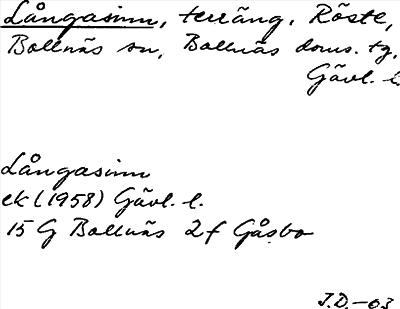 Långasinn, terräng, Röste,
Bollnäs sn, Bollnäs doms. tg,
Gävl. l.
Långasinn
ek (1958) Gävl. l.
15 G Bollnäs 2f Gåsbo
J.D.-03